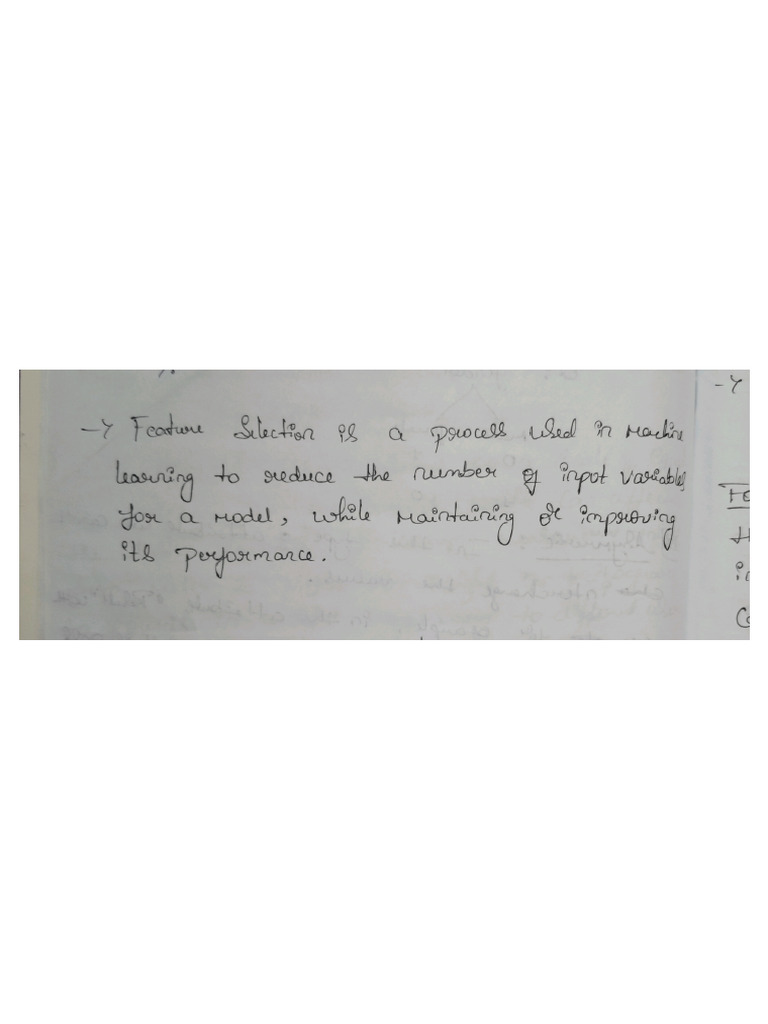 → Feature Selection is a process used in Machine
learning to reduce the number of input variables
for a model, while maintaining or improving
its performance.